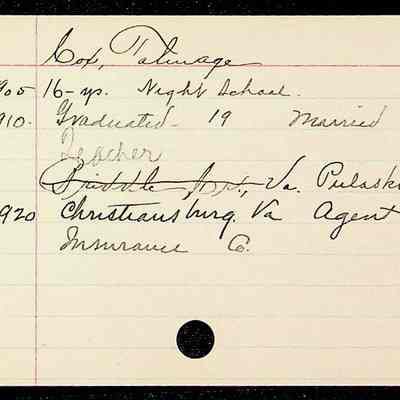 Cox, Talmage
905 16-ys. Night School.
910. Graduated- 19 Married
Teacher
Va. Pulaski
920 Christiansburg. Va Agent
Insurance Co.